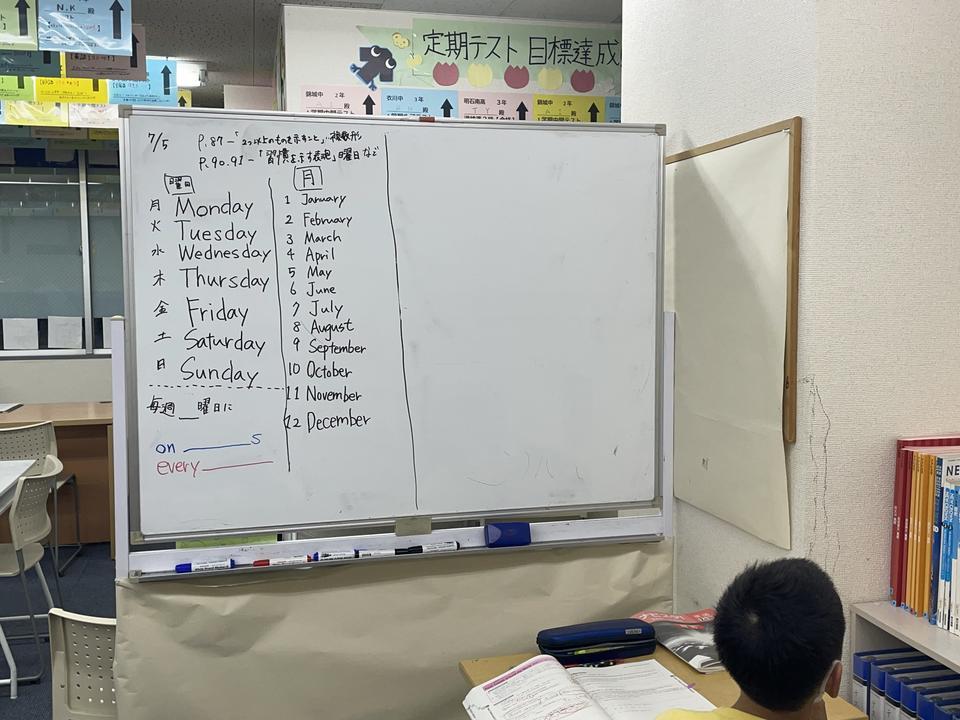 N.K 殿
定期テスト 目標達成
錦城中 2年
衣川中 3年
明石南高 3年
錦城中 2年
7/5 P.87-「2つ以上のものを示すこと」複数形
P.90.91-「習慣を示す表現」曜日など
曜日
月 Monday
火 Tuesday
水 Wednesday
木 Thursday
金 Friday
土 Saturday
日 Sunday
毎週__曜日に
on ______s
every______
月
1 January
2 February
3 March
4 April
5 May
6 June
7 July
8 August
9 September
10 October
11 November
12 December
NE